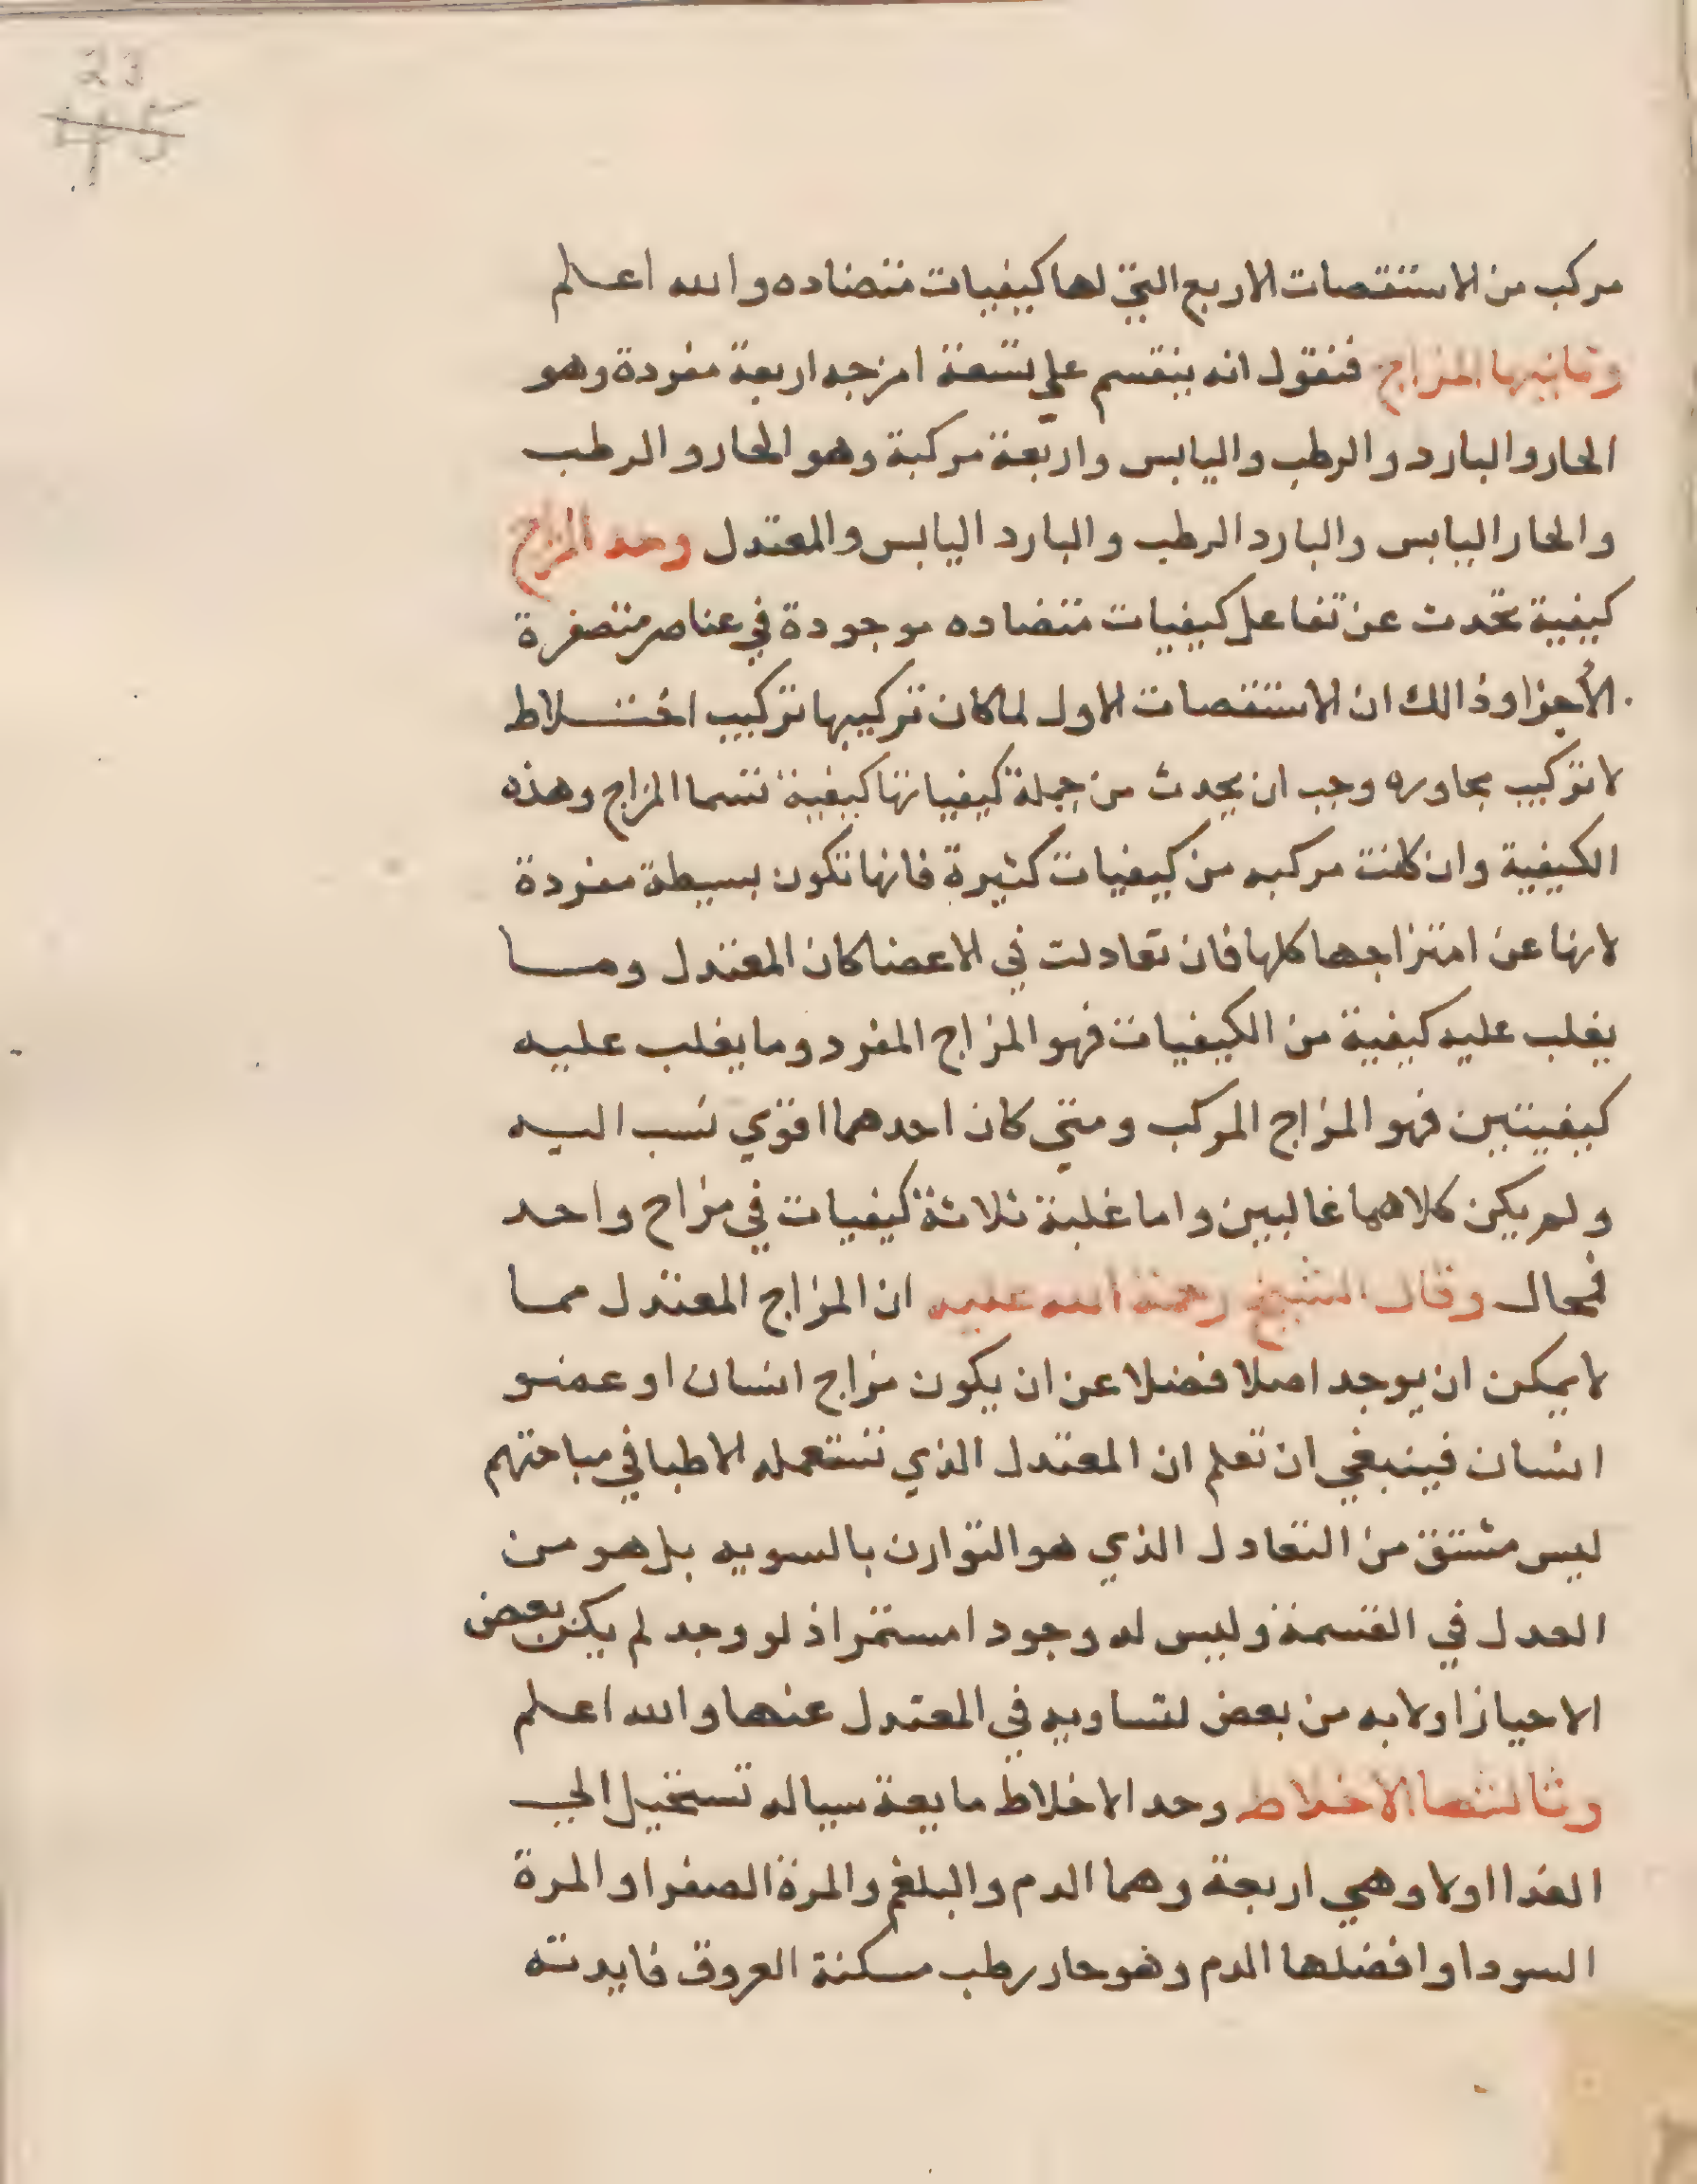 23
45
مركب من الاستقصات الاربع التي لها كيفيات متضاده والله اعلم
وثانيها المزاج فنقول انه ينقسم علي تسعة امزجه اربعة مفردة وهو
الحار والبارد والرطب واليابس واربعة مركبة وهو الحار والرطب
والحار اليابس والبارد الرطب والبارد اليابس والمعتدل وحد المزاج
كيفية تحدث عن تفاعل كيفيات متضاده موجودة في عناصر متصغرة
الأجزا وذالك ان الاستقصات الاول لما كان تركيبها تركيب اختلاط
لا تركيب مجاوره وجب ان يحدث من جملة كيفياتها كيفية تسما المزاج وهذه
الكيفية وان كانت مركبه من كيفيات كثيرة فانها تكون بسيطة مفردة
لانها عن امتزاجها كلها فان تعادلت في الاعضا كان المعتدل وما
يغلب عليه كيفية من الكيفيات فهو المزاج المفرد وما يغلب عليه
كيفيتين فهو المزاج المركب ومتي كان احدهما اقوي نسب اليه
ولم يكن كلاهما غالبين واما غلبة ثلاثة كيفيات في مزاج واحد
فمحال وقال الشيخ رحمة الله عليه ان المزاج المعتدل مما
لا يمكن ان يوجد اصلا فضلا عن ان يكون مزاج انسان او عضو
انسان فينبغي ان تعلم ان المعتدل الذي تستعمله الاطبا في مباحتهم
ليس مشتق من التعادل الذي هو التوازن بالسويه بل هو من
العدل في القسمة وليس له وجود ا مستمر اذ لو وجد لم يكن بعض
الاحياز اولا به من بعض لتساويه في المعتدل عنها والله اعلم
وثالثها الاخلاط وحد الاخلاط مايعة سياله تستحيل الي
الغذا اولا وهي اربعة وهما الدم والبلغم والمرة الصفرا والمرة
السودا وافضلها الدم وهو حار رطب مسكنة العروق فايدته